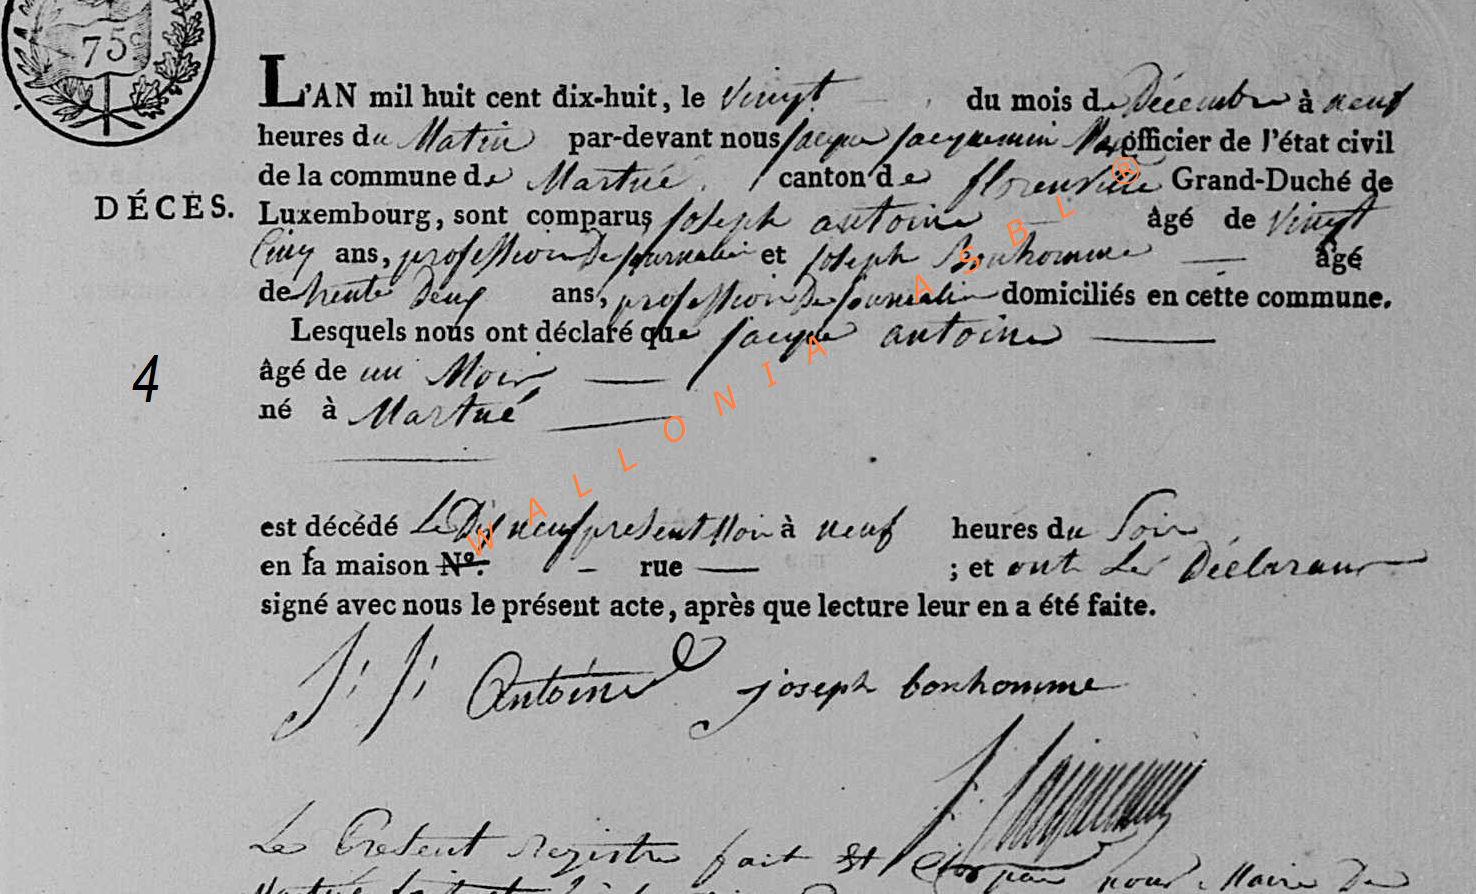 75c
L'AN mil huit cent dix-huit, le Vingt du mois de Décembre à neuf
heures du Matin par-devant nous jacque jacquemin officier de l'état civil
de la commune de Martué canton de florenville Grand-Duché de
DÉCÈS.
Luxembourg, sont comparus joseph antoine âgé de Vingt
Cinq ans, profession De journalier et joseph Bonhomme âgé
de trente Deux ans, profession De journalier domiciliés en cette commune.
Lesquels nous ont déclaré que jacque antoine
4
âgé de un Mois
né à Martué
est décédé Le Dix neuf present Mois à neuf heures du Soir
en sa maison Nº. rue ; et ont Les Déclarans
signé avec nous le présent acte, après que lecture leur en a été faite.
J: J: Antoine joseph bonhomme
J. Jacquemin
Le Present Registre fait Et Clos par nous Maire De
WALLONIA ASBL ®